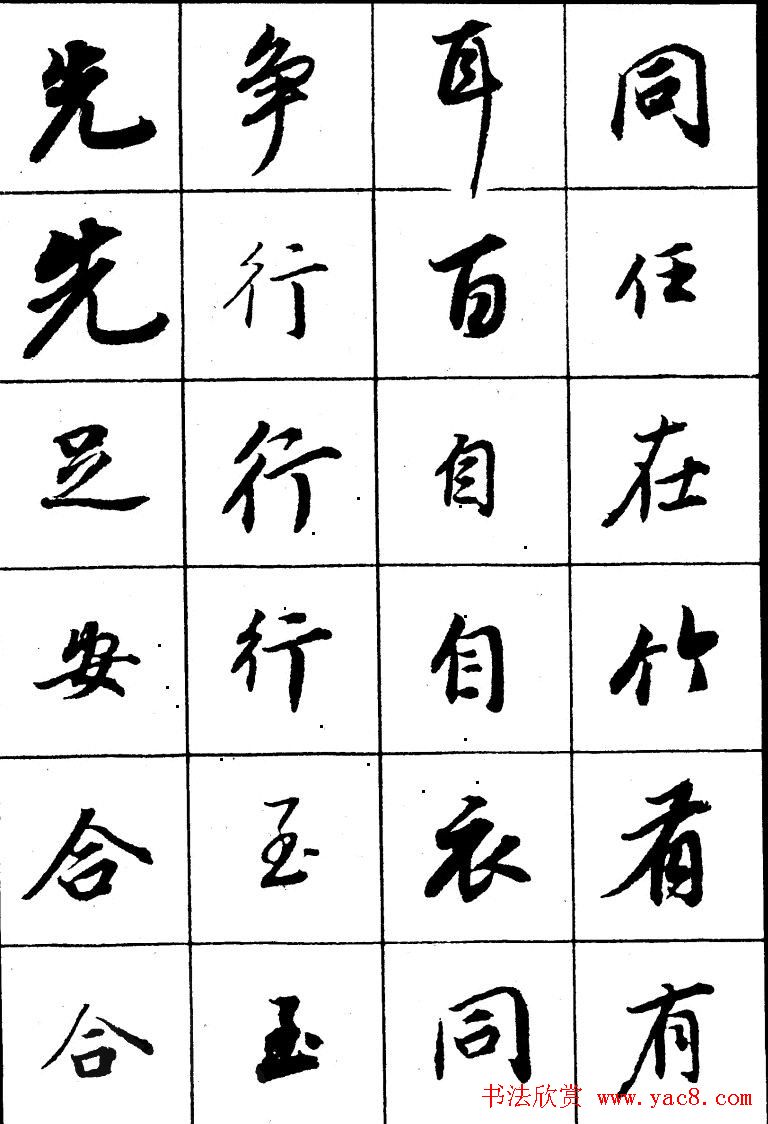 先先足安合合
争行行行至至
耳百自自衣同
同任在竹有有
书法欣赏 www.yac8.com